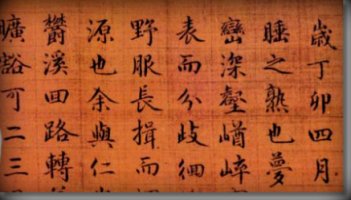 歲丁卯四月
睡之熟也夢
巒深壑崷崒
表而分歧徊
野服長揖而
源也余與仁
欝溪囬路轉
曠豁可二三